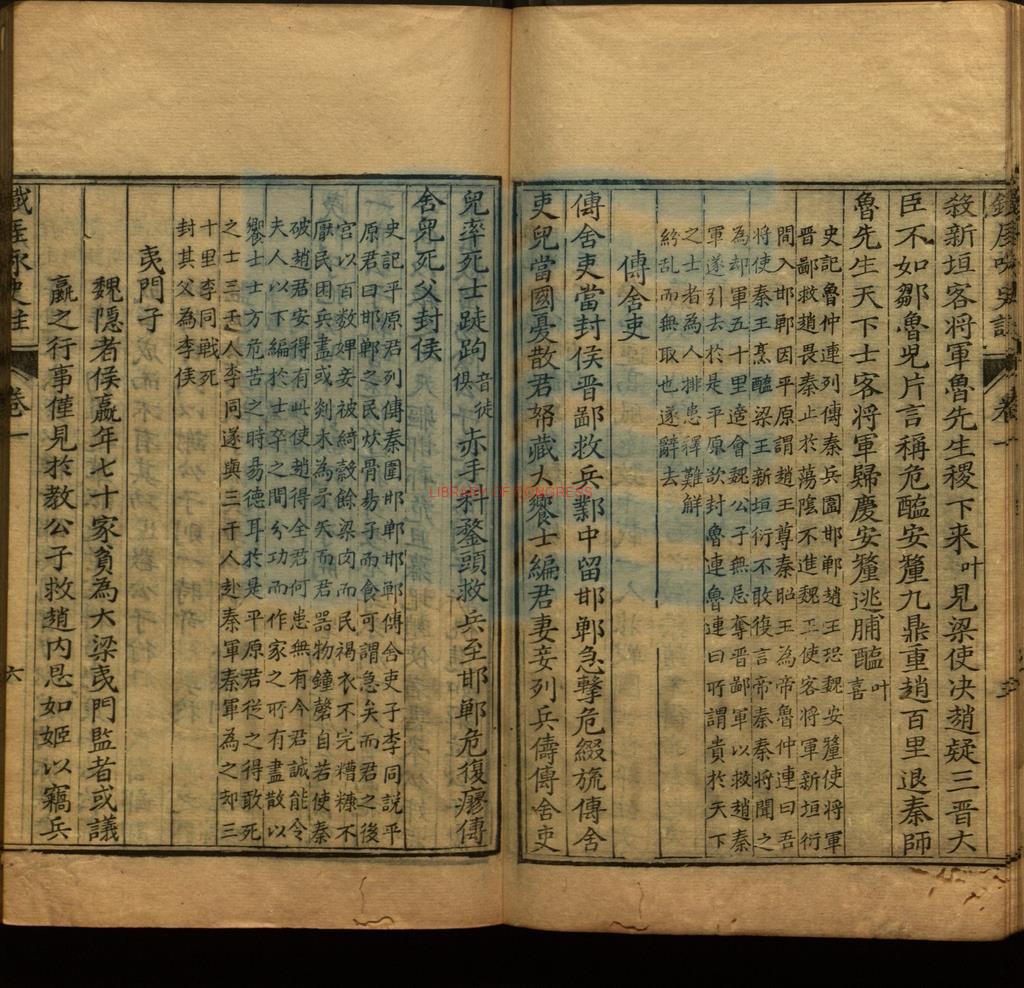 鐵厓咏史註 卷一
殺新垣客將軍魯先生稷下来叶見梁使决趙疑三晋大
臣不如鄒魯児片言稱危醢安釐九鼎重趙百里退秦師
魯先生天下士客將軍歸慶安釐逃脯醢叶喜
史記魯仲連列傳秦兵圍邯鄲趙王恐魏安釐使將軍
晋鄙救趙畏秦止於蕩陰不進魏王使客将軍新垣衍
間入邯鄲因平原謂趙王尊秦昭王為帝魯仲連曰吾
将使秦王烹醢梁王新垣衍不敢復言帝秦秦将聞之
為却軍五十里適會魏公子無忌奪晋鄙軍以救趙秦
軍遂引去於是平原欲封魯連魯連曰所謂貴於天下
之士者為人排患釋難解
紛乱而無取也遂辭去
傳舍吏
傳舍吏當封侯晋鄙救兵鄴中留邯鄲急擊危綴旒傳舍
吏兒當國憂散君帑藏大饗士編君妻妾列兵儔傳舍吏
兒率死士跿跔音徒俱赤手科鍪頭救兵至邯鄲危復瘳傳
舍兒死父封侯
史記平原君列傳秦圍邯鄲邯鄲傳舍吏子李同説平
原君曰邯鄲之民炊骨易子而食可謂急矣而君之後
宮以百数婢妾被綺縠餘梁肉而民褐衣不完糟糠不
厭民困兵盡或剡木為矛矢而君器物鐘磬自若使秦
破趙君安得有此使趙得全君何患無有今君誠能令
夫人以下編於士卒之間分功而作家之所有盡散以
饗士士方危苦之時易德耳於是平原君從之得敢死
之士三千人李同遂與三千人赴秦軍秦軍為之却三
十里李同戰死
封其父為李侯
夷門子
魏隱者侯嬴年七十家貧為大梁夷門監者或議
嬴之行事僅見於教公子救趙内恳如姬以竊兵
鐵厓咏史註 卷一 六
LIBRARY OF CONGRESS